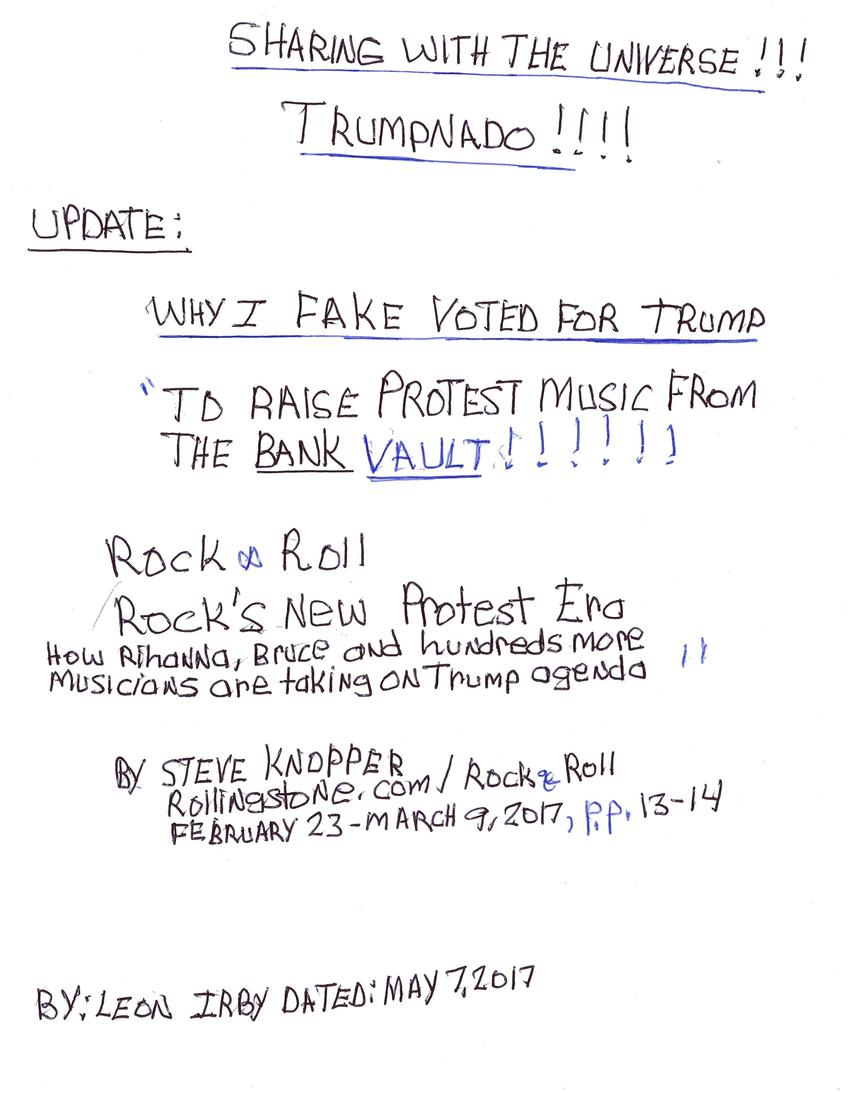 SHARING WITH THE UNIVERSE!!!
TRUMPNADO!!!!
UPDATE:
WHY I FAKE VOTED FOR TRUMP
"TO RAISE PROTEST MUSIC FROM
THE BANK VAULT!!!!!!
Rock & Roll
Rock's New Protest Era
How Rihanna, Bruce and hundreds more
Musicians are taking on Trump agenda "
By STEVE KNOPPER
Rollingstone.com/Rock & Roll
FEBRUARY 23-MARCH 9, 2017, p.p. 13-14
BY: LEON IRBY DATED: MAY 7, 2017